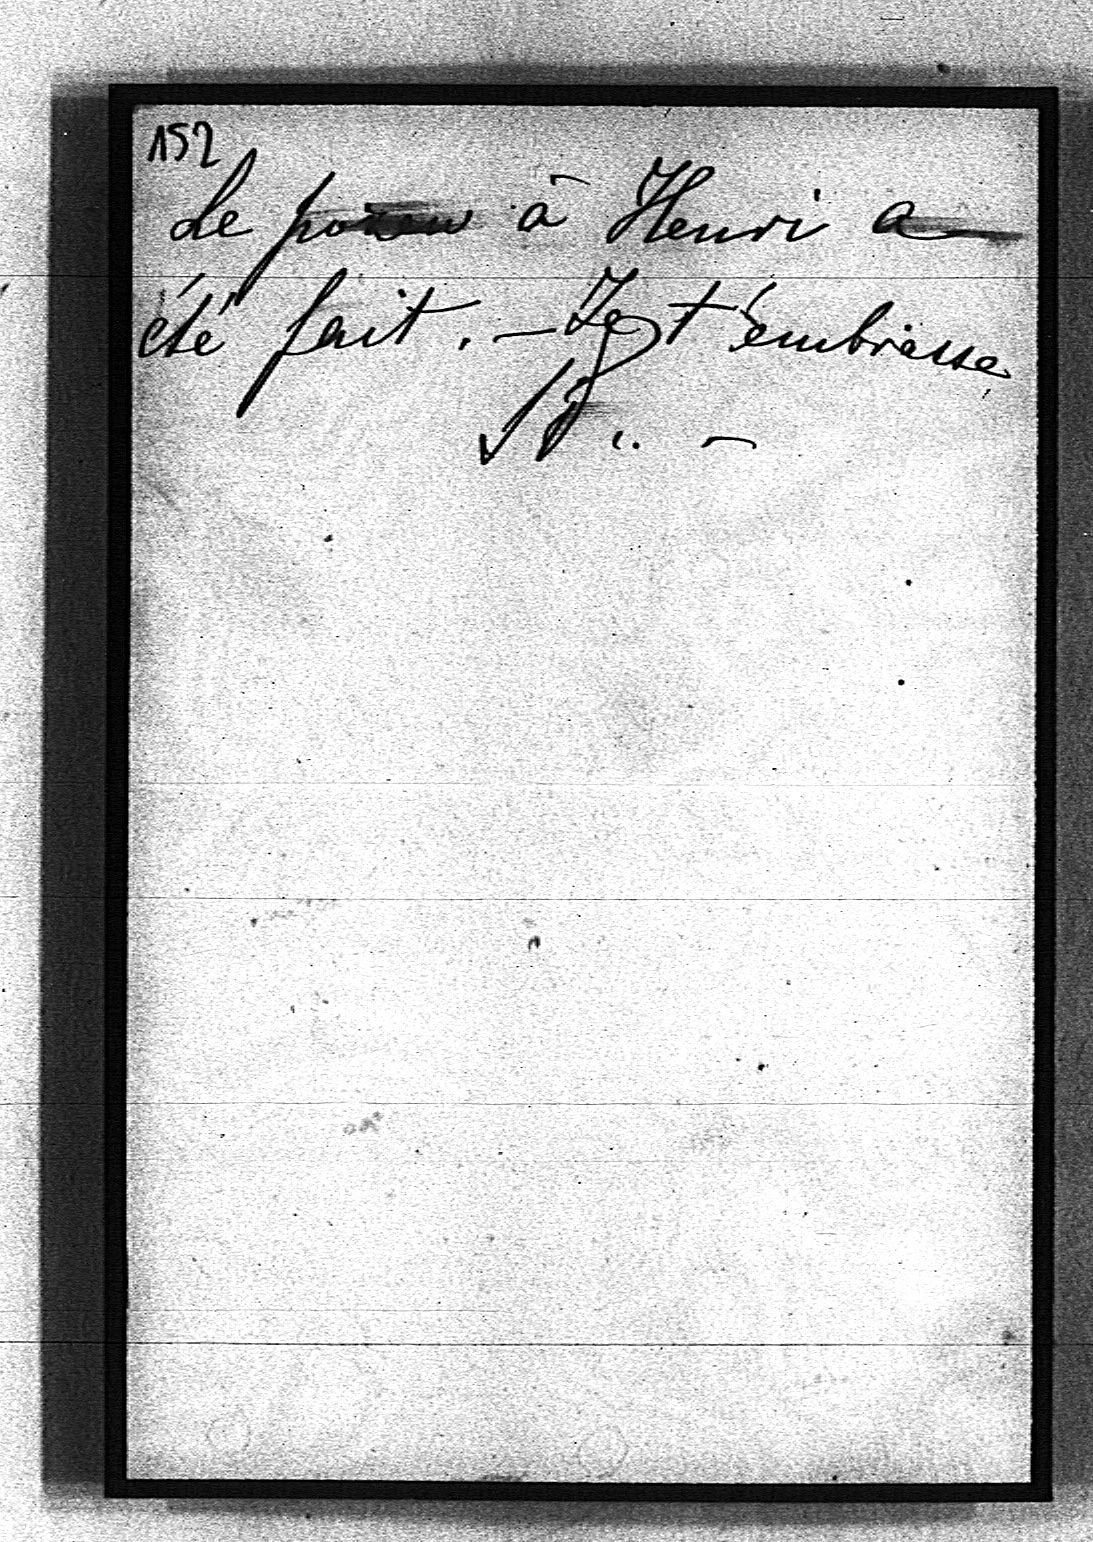 152
Le à Henri a
été fait. — Je t'embrasse